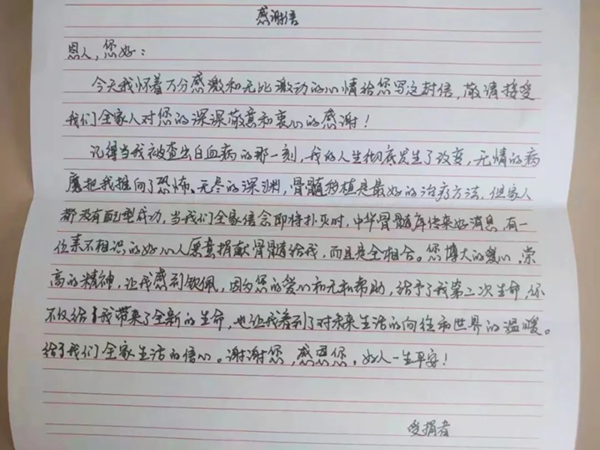 感谢信
恩人,您好:
今天我怀着万分感激和无比激动的心情给您写这封信,敬请接受
我们全家人对您的深深敬意和衷心的感谢!
记得当我被查出白血病的那一刻,我的人生彻底发生了改变,无情的病
魔把我推向了恐怖、无尽的深渊,骨髓移植是最好的治疗方法,但家人
都没有配型成功,当我们全家信念即将扑灭时,中华骨髓库传来好消息,有一
位素不相识的好心人愿意捐献骨髓给我,而且是全相合。您博大的爱心,崇
高的精神,让我感到钦佩,因为您的爱心和无私帮助,给予了我第二次生命,你
不仅给我带来了全新的生命,也让我看到了对未来生活的向往和世界的温暖。
给了我们全家生活的信心。谢谢您,感恩您,好人一生平安!
受捐者